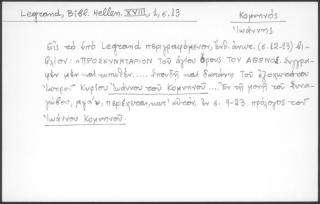 Legrand, Bibl. Hellen. XVIII, 1, σ. 13
Κομνηνός
Ἰωάννης
Εἰς τὸ ὑπὸ Legrand περιγραφόμενον, ἔνθ. ἀνωτ. (σ. 12-13) βι-
βλίον: «ΠΡΟΣΚΥΝΗΤΑΡΙΟΝ τοῦ ἁγίου ὄρους ΤΟΥ ΑΘΩΝΟΣ συγγρα-
φὲν μὲν καὶ τυπωθὲν.... σπουδῇ καὶ δαπάνῃ τοῦ ἐξοχωτάτου
ἰατροῦ Κυρίου Ἰωάννου τοῦ Κομνηνοῦ ... Ἐν τῇ μονῇ τοῦ Συνα-
γώβου, περιέχεται ἐν σ. 4-23, πρόλογος τοῦ
Ἰωάννου Κομνηνοῦ